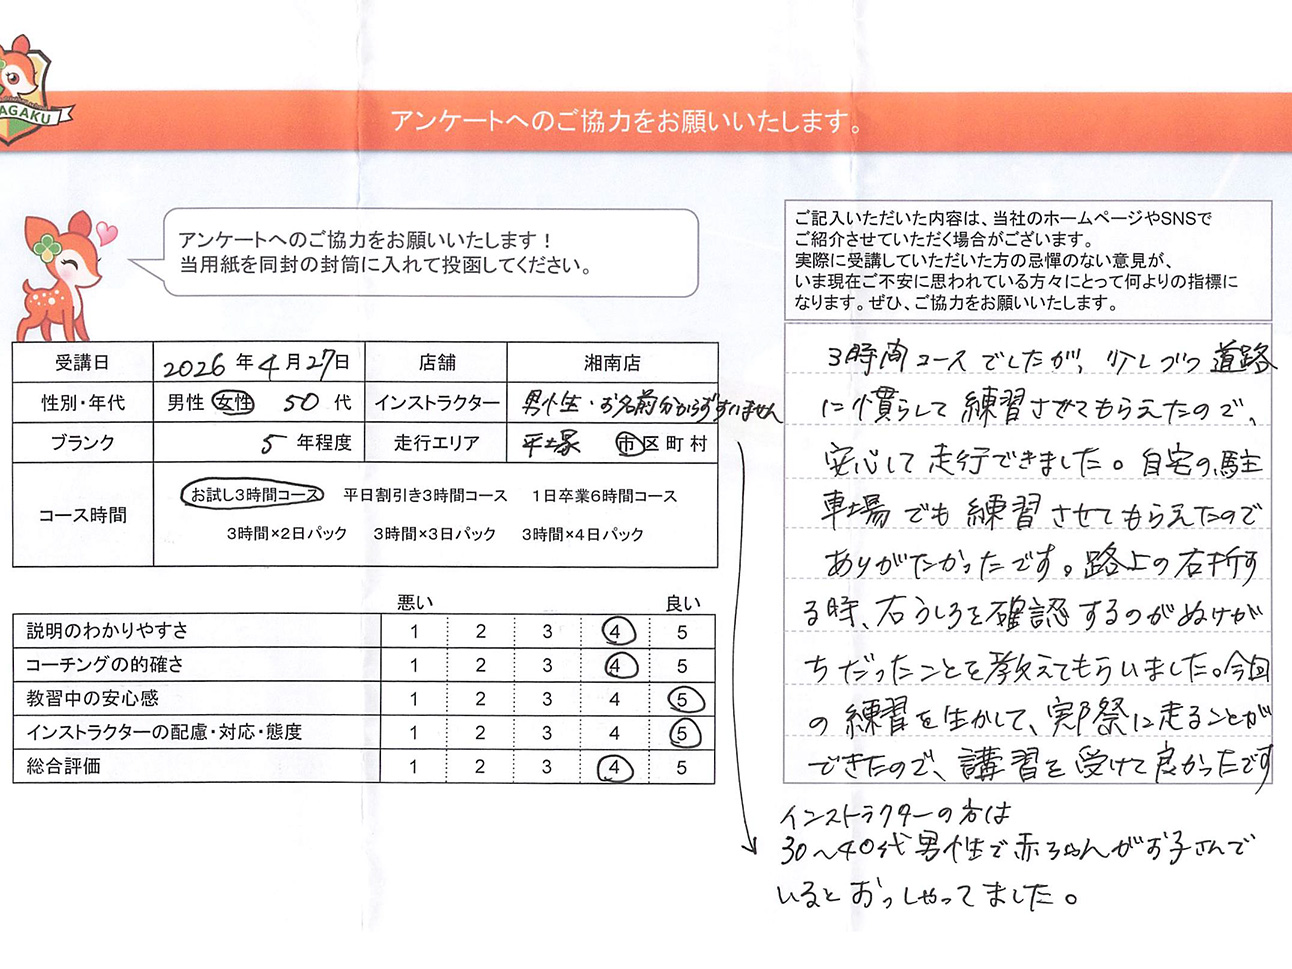 AGAKU
アンケートへのご協力をお願いいたします。
アンケートへのご協力をお願いいたします！
当用紙を同封の封筒に入れて投函してください。
ご記入いただいた内容は、当社のホームページやSNSで
ご紹介させていただく場合がございます。
実際に受講していただいた方の忌憚のない意見が、
いま現在ご不安に思われている方々にとって何よりの指標に
なります。ぜひ、ご協力をお願いいたします。
受講日 2026年4月27日 店舗 湘南店
性別・年代 男性 女性 50代 インストラクター 男性生・お名前分からずすいません
ブランク 5年程度 走行エリア 平塚 市区町村
コース時間 お試し3時間コース 平日割引き3時間コース 1日卒業6時間コース
3時間×2日パック 3時間×3日パック 3時間×4日パック
悪い 良い
説明のわかりやすさ 1 2 3 4 5
コーチングの的確さ 1 2 3 4 5
教習中の安心感 1 2 3 4 5
インストラクターの配慮・対応・態度 1 2 3 4 5
総合評価 1 2 3 4 5
3時間コースでしたが、少しづつ道路
に慣らして練習させてもらえたので、
安心して走行できました。自宅の駐
車場でも練習させてもらえたので
ありがたかったです。路上の右折す
る時、右うしろを確認するのがぬけが
ちだったことを教えてもらいました。今回
の練習を生かして、実際に走ることが
できたので、講習を受けて良かったです
インストラクターの方は
30〜40代男性で赤ちゃんがお子さんで
いるとおっしゃってました。